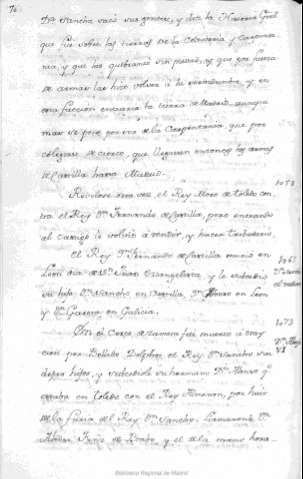 70
Dª Sancha sacó sus gentes, y dice la Historia Gral
que fué sobre las tierras de la Celtiberia y Carpeta-
nia, y que las quebrantó sin piedad, y que por fuerza
de armas las hizo volver á la servidumbre, y en
una facción entraria la tierra de Madrid, aunque
mas se puede por esto de la Carpentania, que por
colegirse de cierto, que llegasen entonces las armas
de Castilla hasta Madrid.
1053
Rebelóse otra vez el Rey Moro de Toledo con-
tra el Rey Dn Fernando de Castilla, pero entrando
al castigo le volvió á rendir, y hacer tributario.
1065
El Rey Dn Fernando de Castilla murió en
Leon dia de Sn Juan Evangelista y le sucedió
su hijo Dn Sancho en Castilla, Dn Alonso en Leon
y Dn Garcia en Galicia.
1073
Dn Alonso
VI
En el Cerco de Zamora fué muerto á tray-
cion por Bellido Dolphos el Rey Dn Sancho sin
dejar hijos, y sucedióle su hermano Dn Alonso qe
estaba en Toledo con el Rey Almenon, por huir
de la furia del Rey Dn Sancho. Llamaronle Dn
Alonso de Bravo, y el de la mano hora-
Biblioteca Regional de Madrid